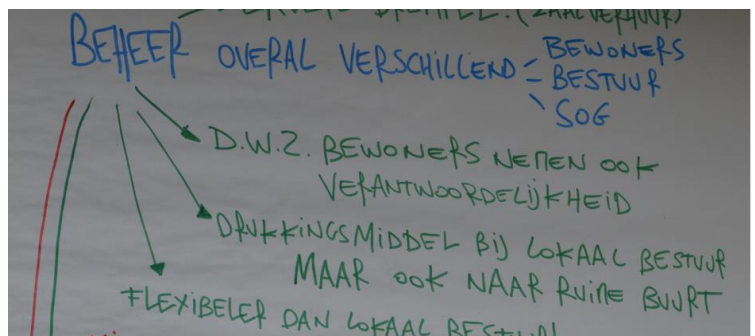 (ZAALVERHUUR)
BEHEER OVERAL VERSCHILLEND - BEWONERS
- BESTUUR
- SOG
D.W.Z. BEWONERS NEMEN OOK
VERANTWOORDELIJKHEID
DRUKKINGSMIDDEL BIJ LOKAAL BESTUUR
MAAR OOK NAAR RUIME BUURT
FLEXIBELER DAN LOKAAL BESTUUR